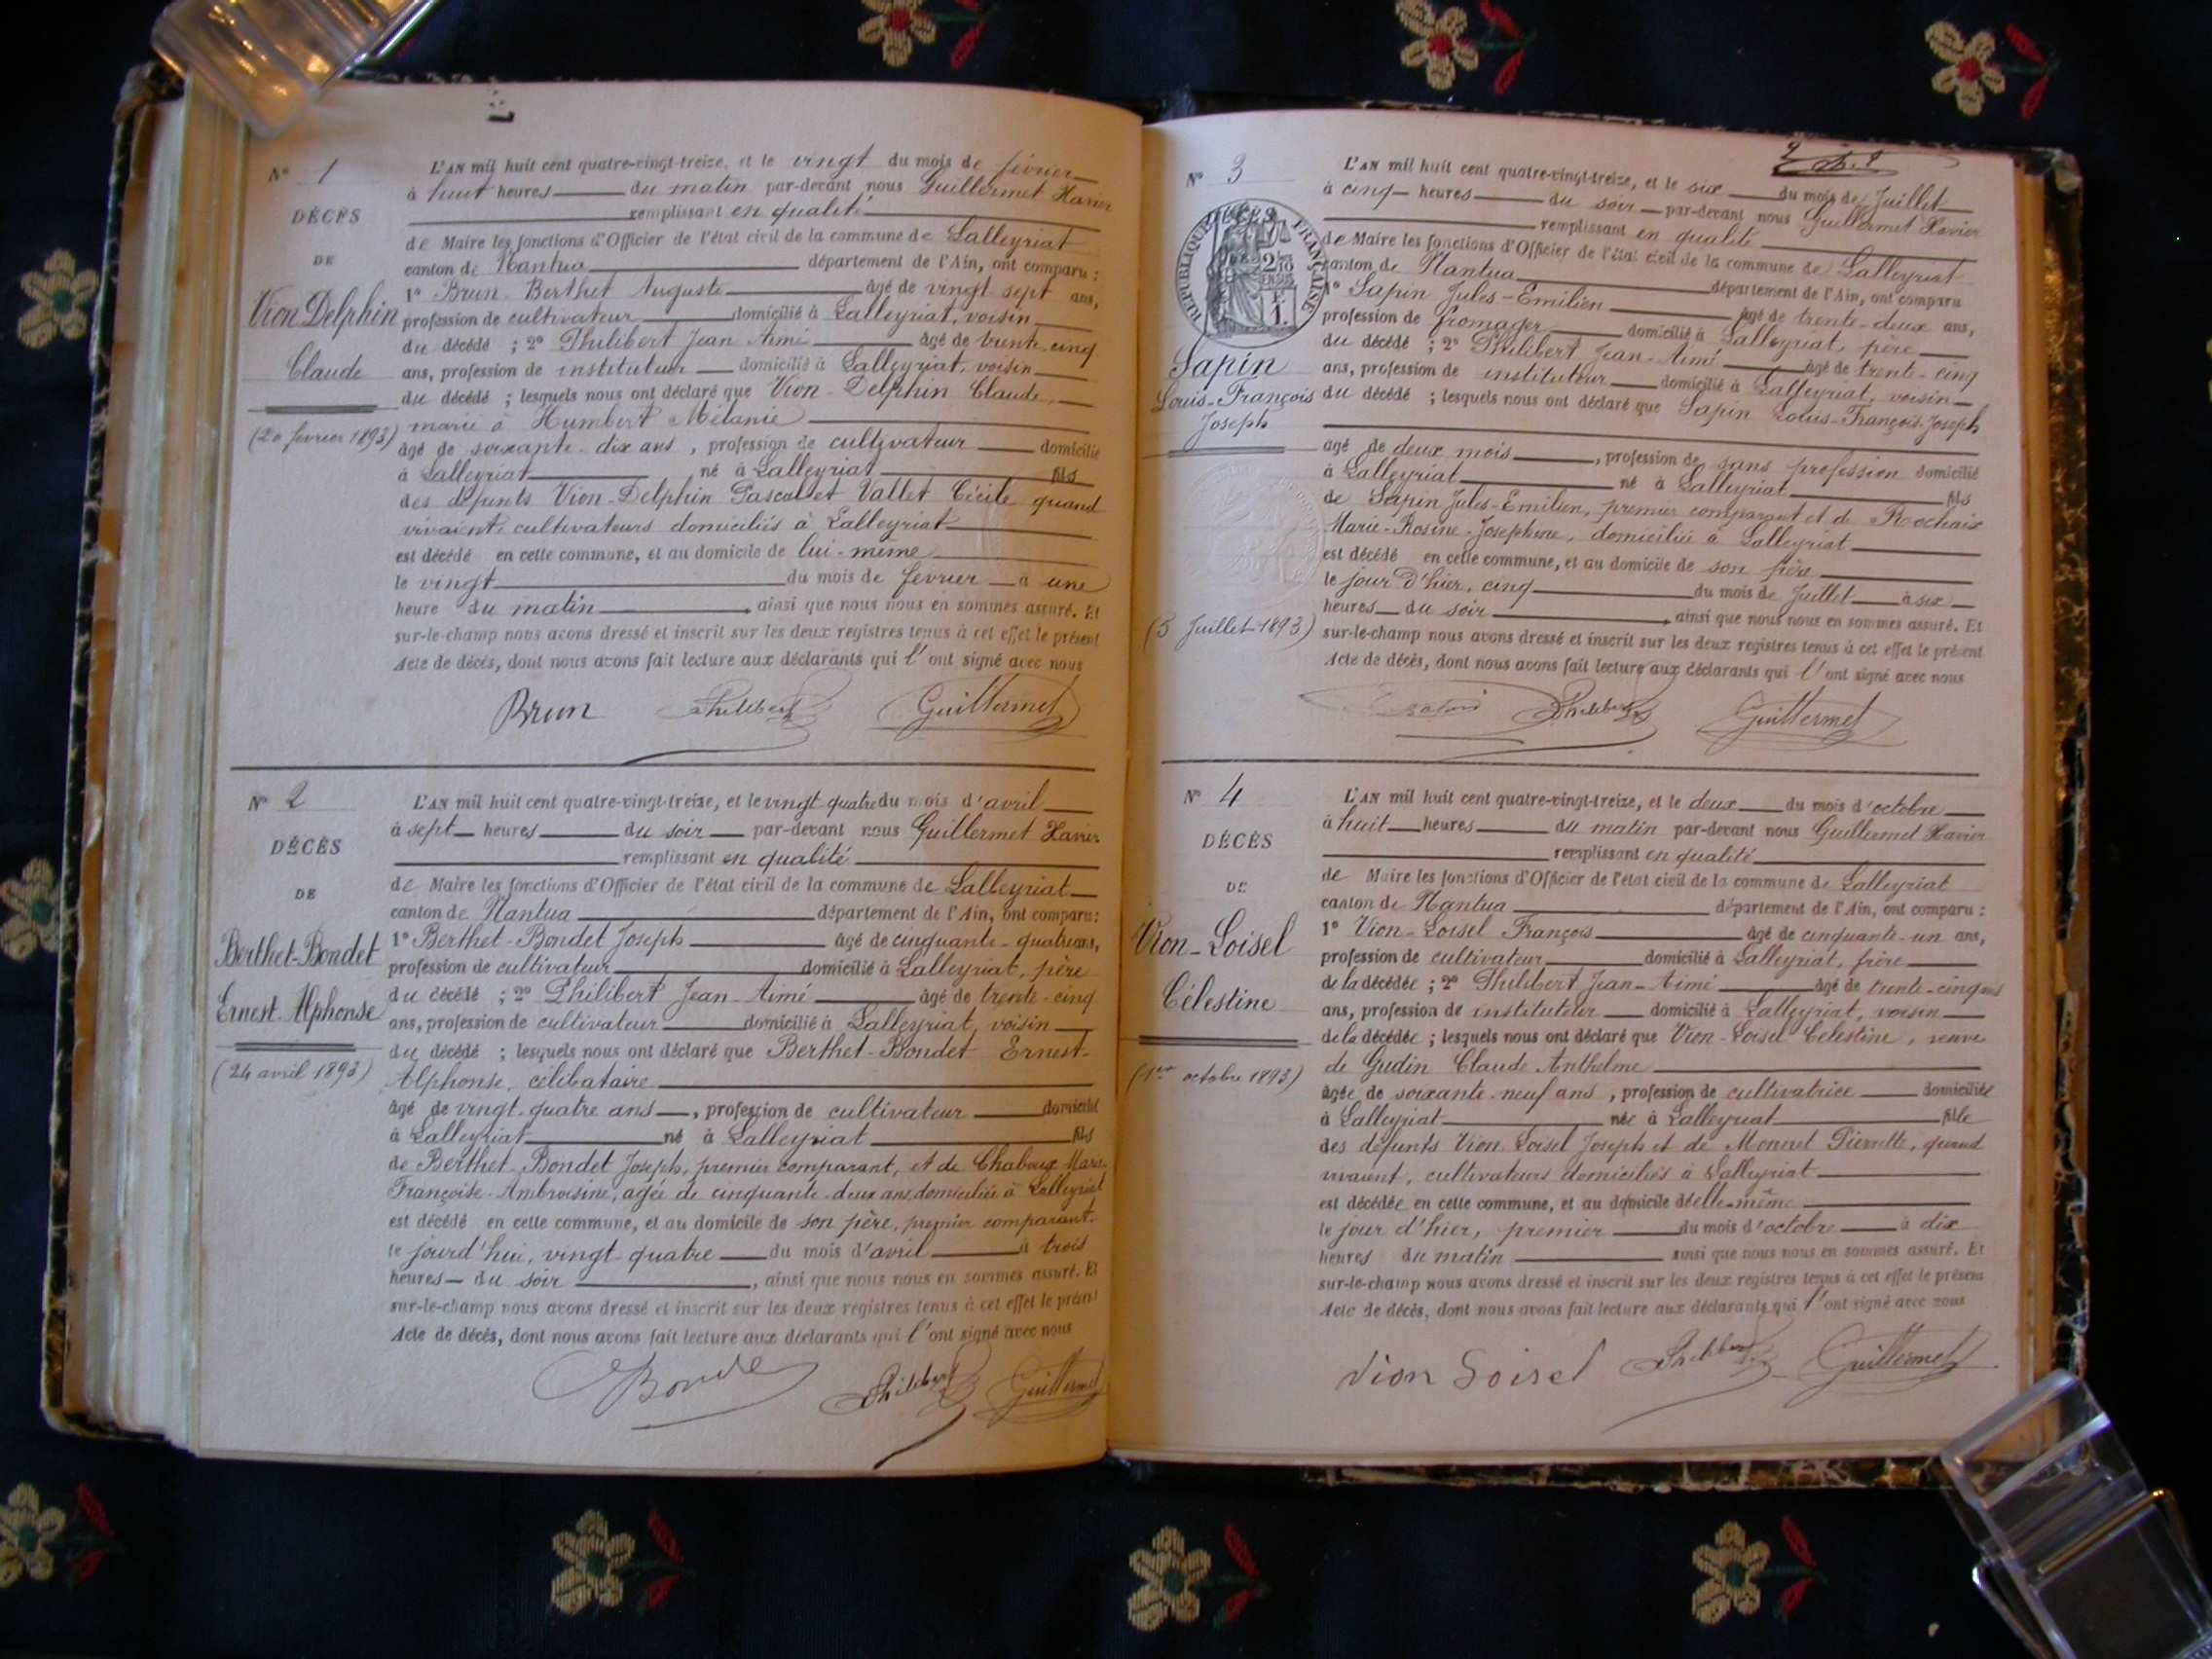 N° 1
DÉCÈS
DE
Vion Delphin
Claude
(20 février 1893)
L'AN mil huit cent quatre-vingt-treize, et le vingt du mois de février
à huit heures du matin par-devant nous Guillermet Xavier
remplissant en qualité
de Maire les fonctions d'Officier de l'état civil de la commune de Lalleyriat
canton de Nantua département de l'Ain, ont comparu :
1° Brun-Berthet Auguste âgé de vingt sept ans,
profession de cultivateur domicilié à Lalleyriat, voisin
du décédé ; 2° Philibert Jean Aimé âgé de trente-cinq
ans, profession de instituteur domicilié à Lalleyriat, voisin
du décédé ; lesquels nous ont déclaré que Vion-Delphin Claude,
marié à Humbert Mélanie
âgé de soixante-dix ans, profession de cultivateur domicilié
à Lalleyriat, né à Lalleyriat fils
des défunts Vion-Delphin Pascal et Vallet Cécile quand
vivaient cultivateurs domiciliés à Lalleyriat
est décédé en cette commune, et au domicile de lui-même
le vingt du mois de février à une
heure du matin, ainsi que nous nous en sommes assuré. Et
sur-le-champ nous avons dressé et inscrit sur les deux registres tenus à cet effet le présent
Acte de décès, dont nous avons fait lecture aux déclarants qui l'ont signé avec nous
Brun Philibert Guillermet
N° 2
DÉCÈS
DE
Berthet-Bondet
Ernest-Alphonse
(24 avril 1893)
L'AN mil huit cent quatre-vingt-treize, et le vingt-quatre du mois d'avril
à sept heures du soir par-devant nous Guillermet Xavier
remplissant en qualité
de Maire les fonctions d'Officier de l'état civil de la commune de Lalleyriat
canton de Nantua département de l'Ain, ont comparu :
1° Berthet-Bondet Joseph âgé de cinquante-quatre ans,
profession de cultivateur domicilié à Lalleyriat, père
du décédé ; 2° Philibert Jean-Aimé âgé de trente-cinq
ans, profession de cultivateur domicilié à Lalleyriat, voisin
du décédé ; lesquels nous ont déclaré que Berthet-Bondet Ernest-
Alphonse, célibataire
âgé de vingt-quatre ans, profession de cultivateur domicilié
à Lalleyriat né à Lalleyriat fils
de Berthet-Bondet Joseph, premier comparant, et de Chaboux Marie
Françoise-Ambroisine, agée de cinquante-deux ans, domiciliée à Lalleyriat
est décédé en cette commune, et au domicile de son père, premier comparant.
le jourd'hui, vingt-quatre du mois d'avril à trois
heures du soir, ainsi que nous nous en sommes assuré. Et
sur-le-champ nous avons dressé et inscrit sur les deux registres tenus à cet effet le présent
Acte de décès, dont nous avons fait lecture aux déclarants qui l'ont signé avec nous
Bondet Philibert Guillermet
N° 3
RÉPUBLIQUE FRANÇAISE
2/10
Sapin
Louis-François
Joseph
(5 Juillet 1893)
L'AN mil huit cent quatre-vingt-treize, et le six du mois de Juillet
à cinq heures du soir par-devant nous Guillermet Xavier
remplissant en qualité
de Maire les fonctions d'Officier de l'état civil de la commune de Lalleyriat
canton de Nantua département de l'Ain, ont comparu
1° Sapin Jules-Emilien âgé de trente-deux ans,
profession de fromager domicilié à Lalleyriat, père
du décédé ; 2° Philibert Jean-Aimé âgé de trente-cinq
ans, profession de instituteur domicilié à Lalleyriat, voisin
du décédé ; lesquels nous ont déclaré que Sapin Louis-François-Joseph
agé de deux mois, profession de sans profession domicilié
à Lalleyriat né à Lalleyriat fils
de Sapin Jules-Emilien, premier comparant et de Rochaix
Marie-Rosine-Josephine, domiciliée à Lalleyriat
est décédé en cette commune, et au domicile de son père
le jour d'hier, cinq du mois de Juillet à six
heures du soir, ainsi que nous nous en sommes assuré. Et
sur-le-champ nous avons dressé et inscrit sur les deux registres tenus à cet effet le présent
Acte de décès, dont nous avons fait lecture aux déclarants qui l'ont signé avec nous
Sapin Philibert Guillermet
N° 4
DÉCÈS
DE
Vion-Loisel
Célestine
(1er octobre 1893)
L'AN mil huit cent quatre-vingt-treize, et le deux du mois d'octobre
à huit heures du matin par-devant nous Guillermet Xavier
remplissant en qualité
de Maire les fonctions d'Officier de l'état civil de la commune de Lalleyriat
canton de Nantua département de l'Ain, ont comparu :
1° Vion-Loisel François âgé de cinquante-un ans,
profession de cultivateur domicilié à Lalleyriat, frère
de la décédée ; 2° Philibert Jean-Aimé âgé de trente-cinq ans
ans, profession de instituteur domicilié à Lalleyriat, voisin
de la décédée ; lesquels nous ont déclaré que Vion-Loisel Célestine, veuve
de Gudin Claude Anthelme
âgée de soixante-neuf ans, profession de cultivatrice domiciliée
à Lalleyriat née à Lalleyriat fille
des défunts Vion Loisel Joseph et de Monnet Pierrette, quand
vivaient, cultivateurs domiciliés à Lalleyriat
est décédée en cette commune, et au domicile d'elle-même
le jour d'hier, premier du mois d'octobre à dix
heures du matin ainsi que nous nous en sommes assuré. Et
sur-le-champ nous avons dressé et inscrit sur les deux registres tenus à cet effet le présent
Acte de décès, dont nous avons fait lecture aux déclarants qui l'ont signé avec nous
Vion Loisel Philibert Guillermet